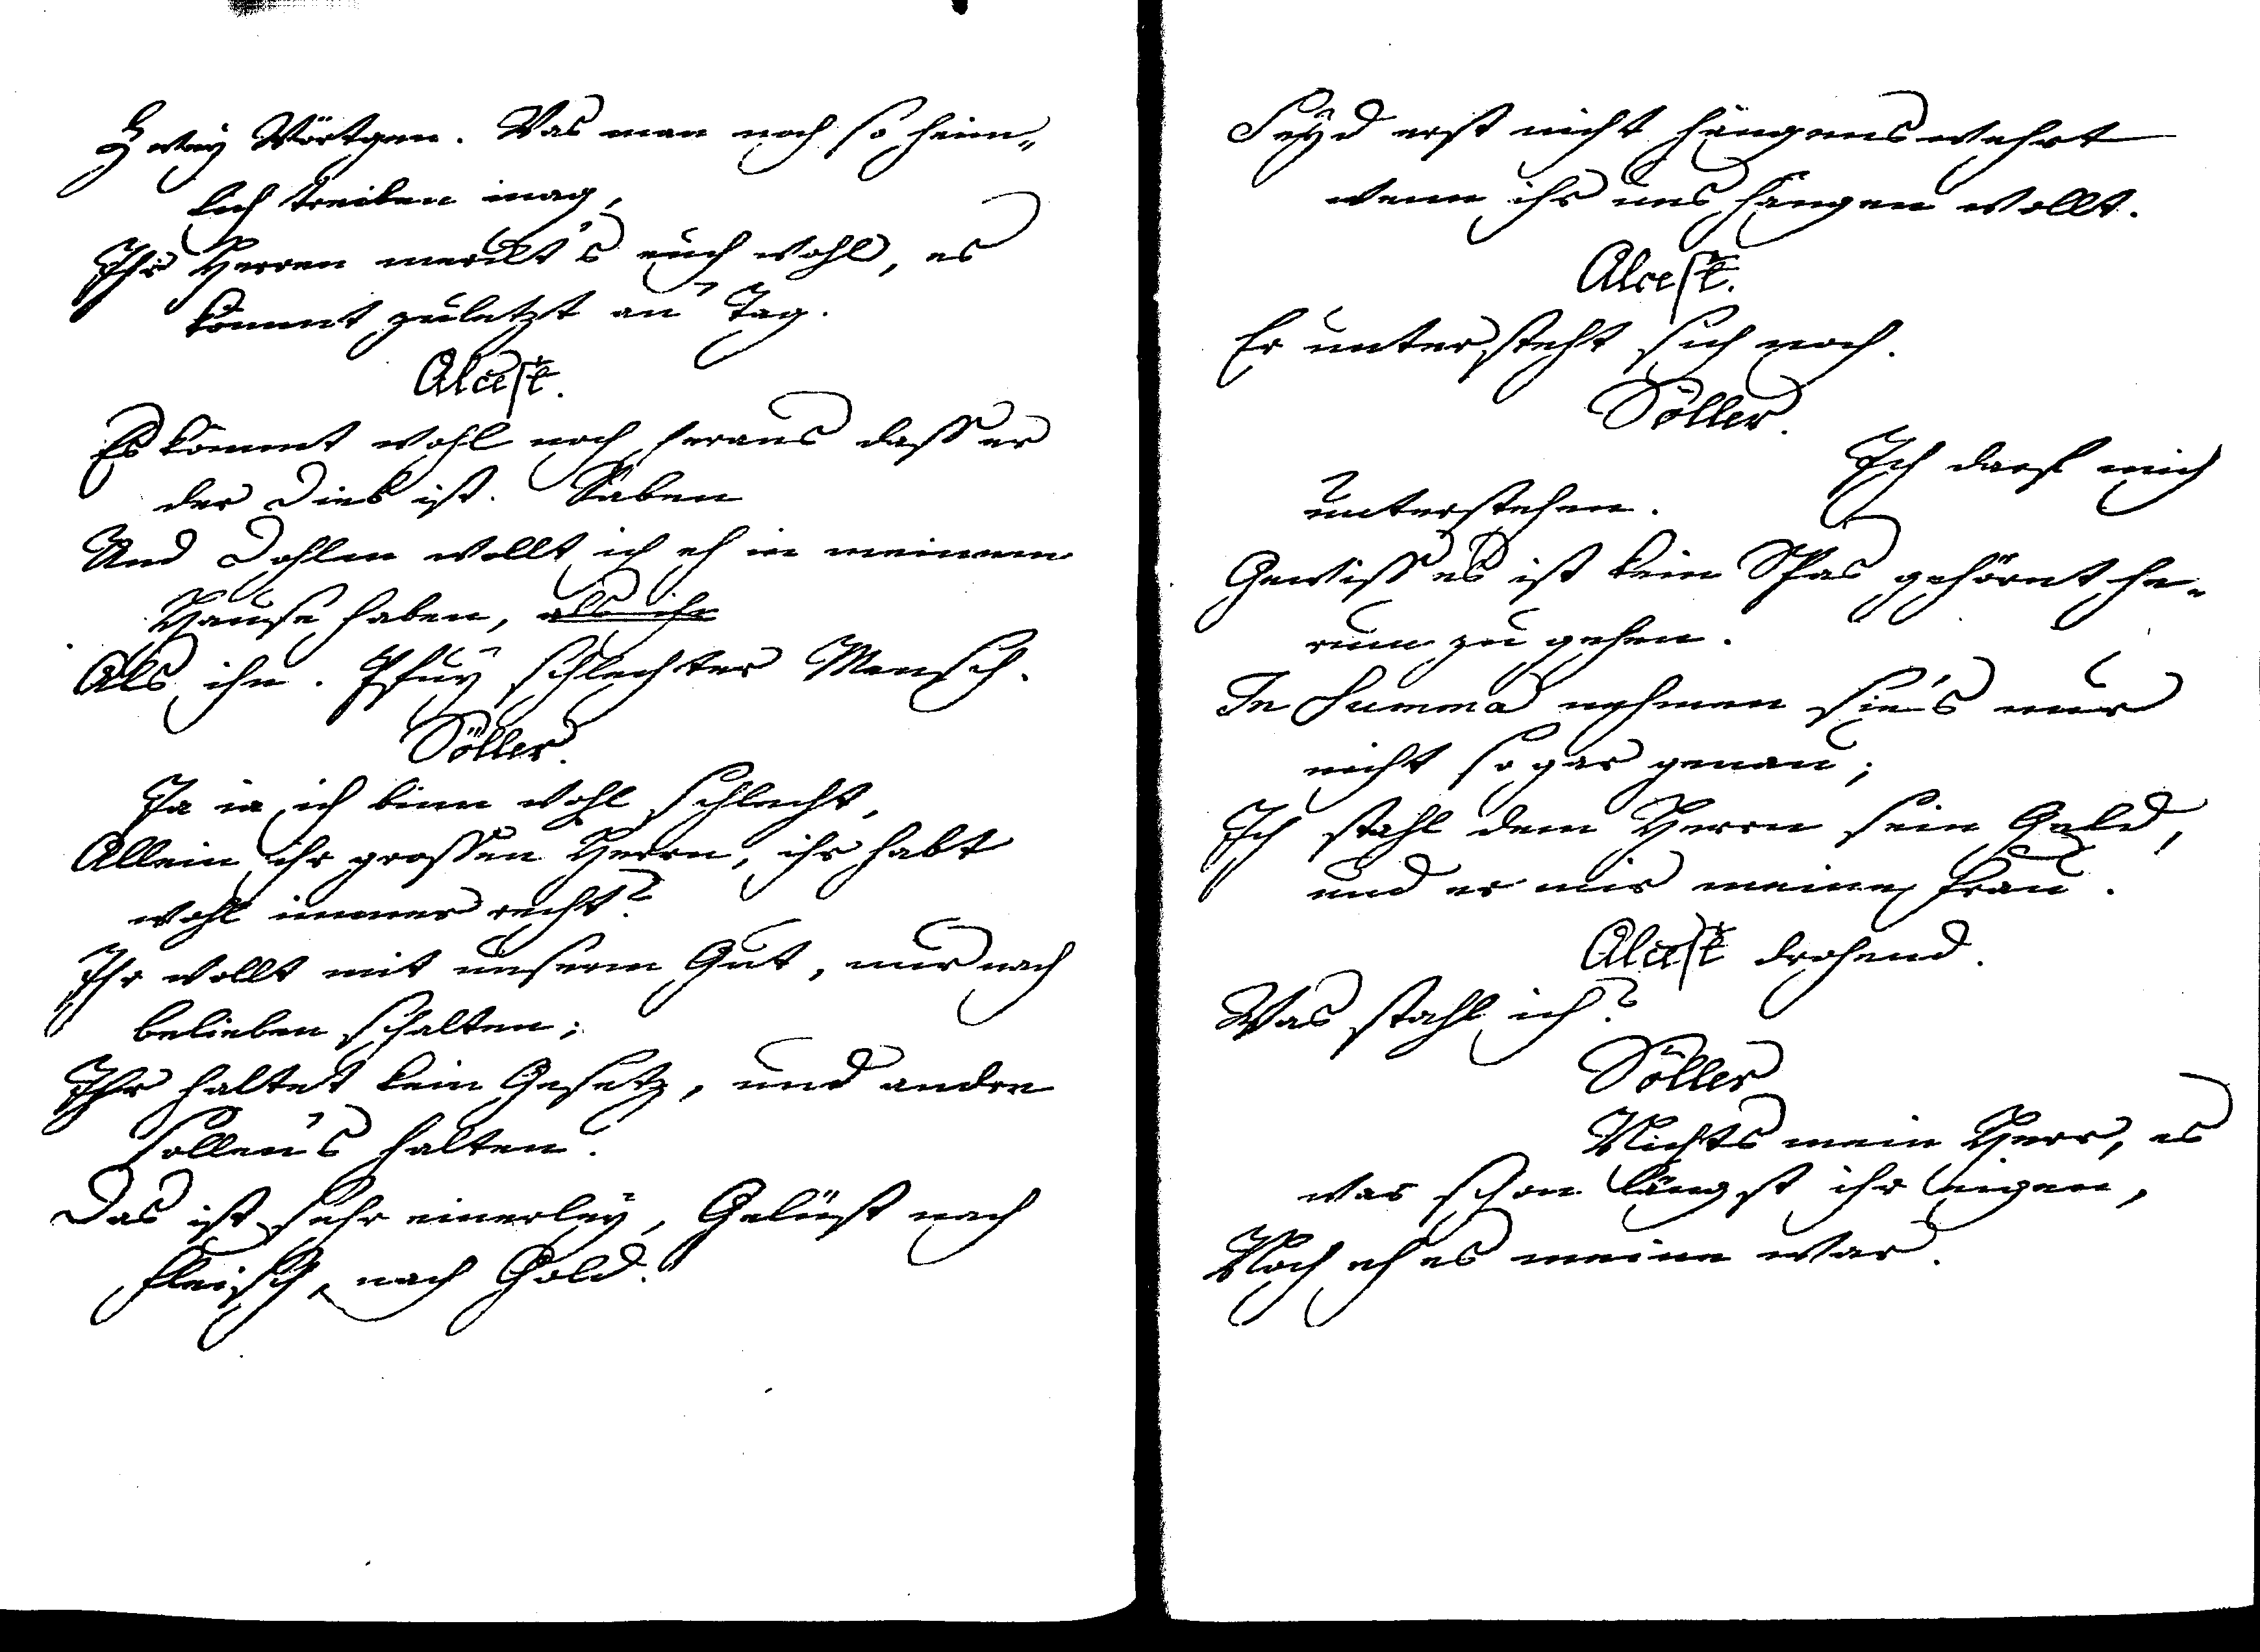 Zwey Wörtgen. Was man noch so heim„
lich treiben mag,
Ihr Herren merckt's euch wohl, es
kommt zuletzt an Tag.
Alcest.
Es kommt wohl noch heraus dass er
der Dieb ist. Raben
Und Dohlen wollt ich eh in meinem
Hause haben, als ihn
Als ihn. Pfuy schlechter Mensch.
Söller.
Ja ia ich binn wohl schlecht,
Allein ihr grossen Herrn, ihr habt
wohl immer recht?
Ihr wollt mit unserm Gut, nur nach
belieben schalten;
Ihr haltet kein Gesetz, und andre
sollen's halten.
Das ist sehr einerley, Gelüst nach
Fleisch, nach Gold.
Seyd erst nicht hängenswehrt
wenn ihr uns hängen wollt.
Alcest.
Er untersteht sich noch.
Söller.
Ich darf mich
unterstehen.
Gewiss es ist kein Spas gehörnt he„
rum zu gehen.
In Summa nehmen sie's nur
nicht so gar genau;
Ich stahl dem Herrn sein Geld,
und er mir meine Frau.
Alcest drohend.
Was stahl ich?
Söller
Nichts mein Herr, es
war schon längst ihr eigen,
Noch eh es meine war.